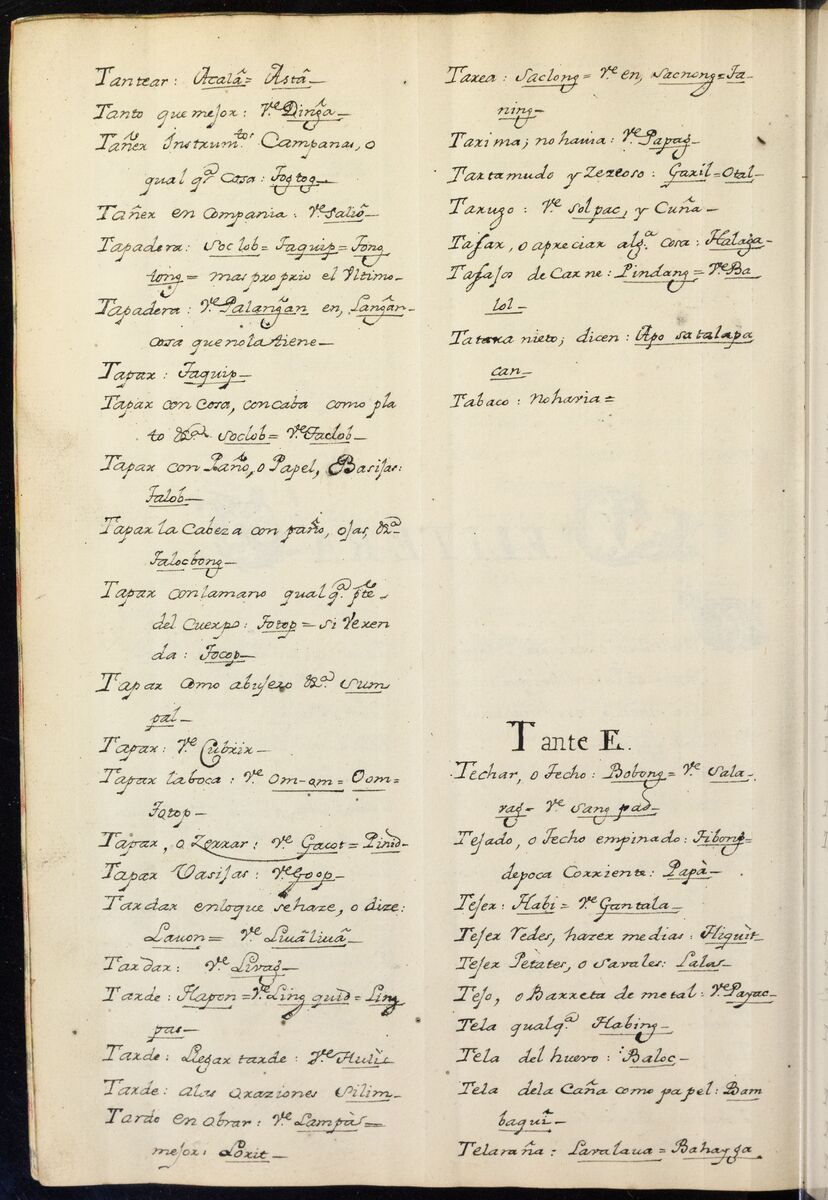 Tantear: Atalâ= Astâ_
Tanto que mejor: Vᵉ Dinga_
Tañer Instrumᵗᵒˢ Campanas, o
qual qʳ Cosa: Togtog_
Tañer en Compania: Vᵉ saliô_
Tapadera: Soclob= Taquip= Tong
tong= mas proprio el Vltimo_
Tapadera: Vᵉ Palangan en, Langan_
cosa que nola tiene_
Tapar: Taquip_
Tapar con Cosa, concaba como pla
to &ᵃ. Soclob= Vᵉ Taclob_
Tapar con Paño, o Papel, Basijas:
Talob_
Tapar la Cabeza con paño, ojas, &ᵃ
Talocbong_
Tapar conlamano qualqᵃ. pᵗᵉ_
del Cuerpo: Totop= si Veren
da: Tocop_
Tapar Como abujero &ᵃ. Sum
pal_
Tapar: Vᵉ Cubrir_
Tapar laboca: Vᵉ Om-om= Oom=
Totop_
Tapar, o Zerrar: Vᵉ Gacot= Pinid_
Tapar Vasijas: Vᵉ Goop_
Tardar enloque sehaze, o dize:
Lauon= Vᵉ Liuâliuâ_
Tardar: Vᵉ Livag_
Tarde: Hapon= Vᵉ Ling quid= Ling
pas_
Tarde: Llegar tarde: Vᵉ Huli_
Tarde: alas oraziones Silim_
Tardo en obrar: Vᵉ Lampàs=
mejor: Lorit_
Tarea: Saclong= Vᵉ en, Sacnong= Ta_
ning_
Tarima; nohauia: Vᵉ Papag_
Tartamudo y Zezeoso: Garil= Otal_
Tarugo: Vᵉ solpac, y Cuña_
Tasar, o apreciar algᵃ. cosa: Halaga_
Tasajos de Carne: Pindang= Vᵉ Ba
lol_
Tatara nieto; dicen: Apo satalapa
can_
Tabaco: nohavia=
Tante E.
Techar, o Techo: Bobong= Vᵉ Sala_
rag= Vᵉ Sang pad_
Tejado, o Techo empinado: Tibong=
depoca Corriente: Papà_
Tejer: Habi= Vᵉ Gantala_
Tejer Redes, hazer medias: Hiquit_
Tejer Petates, o Savales: Lalas_
Tejo, o Barreta de metal: Vᵉ Payac_
Tela qualqᵃ. Habing_
Tela del huevo: Baloc_
Tela dela Caña como papel: Bam
baquî_
Telaraña: Lavalaua= Bahagga_